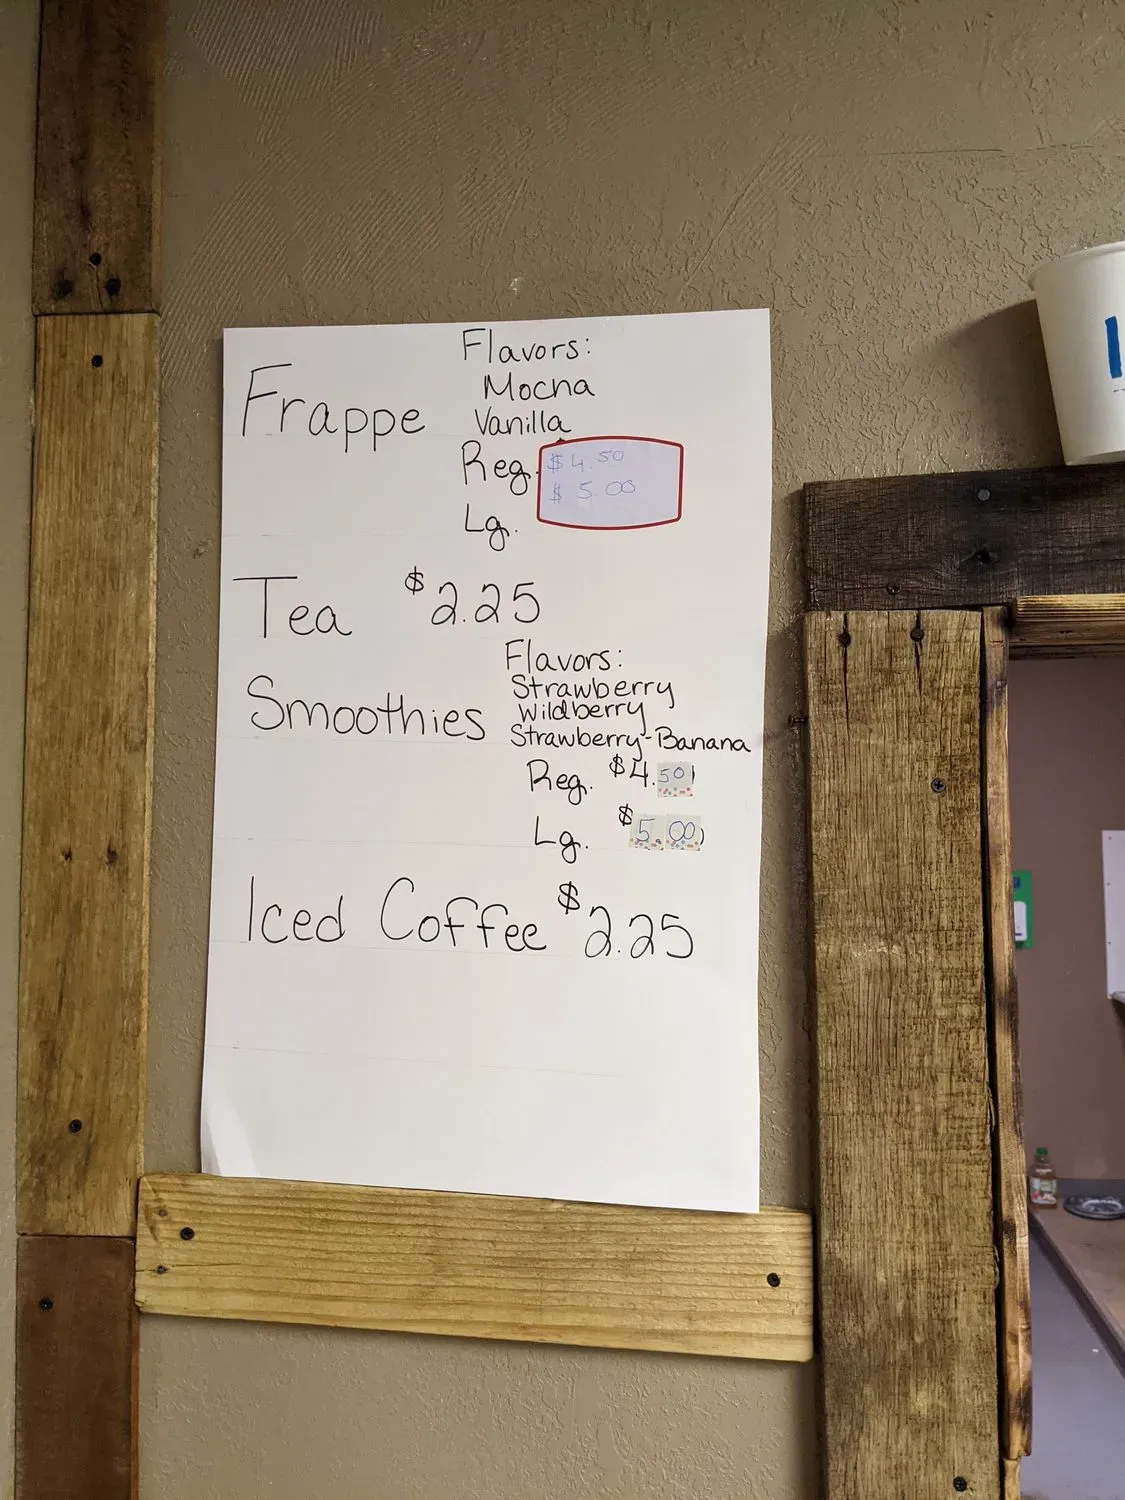 Flavors:
Frappe
Mocha
Vanilla
Reg. $4.50
$5.00
Lg.
Tea $2.25
Flavors:
Smoothies
Strawberry
Wildberry
Strawberry-Banana
Reg. $4.50
Lg. $5.00
Iced Coffee $2.25